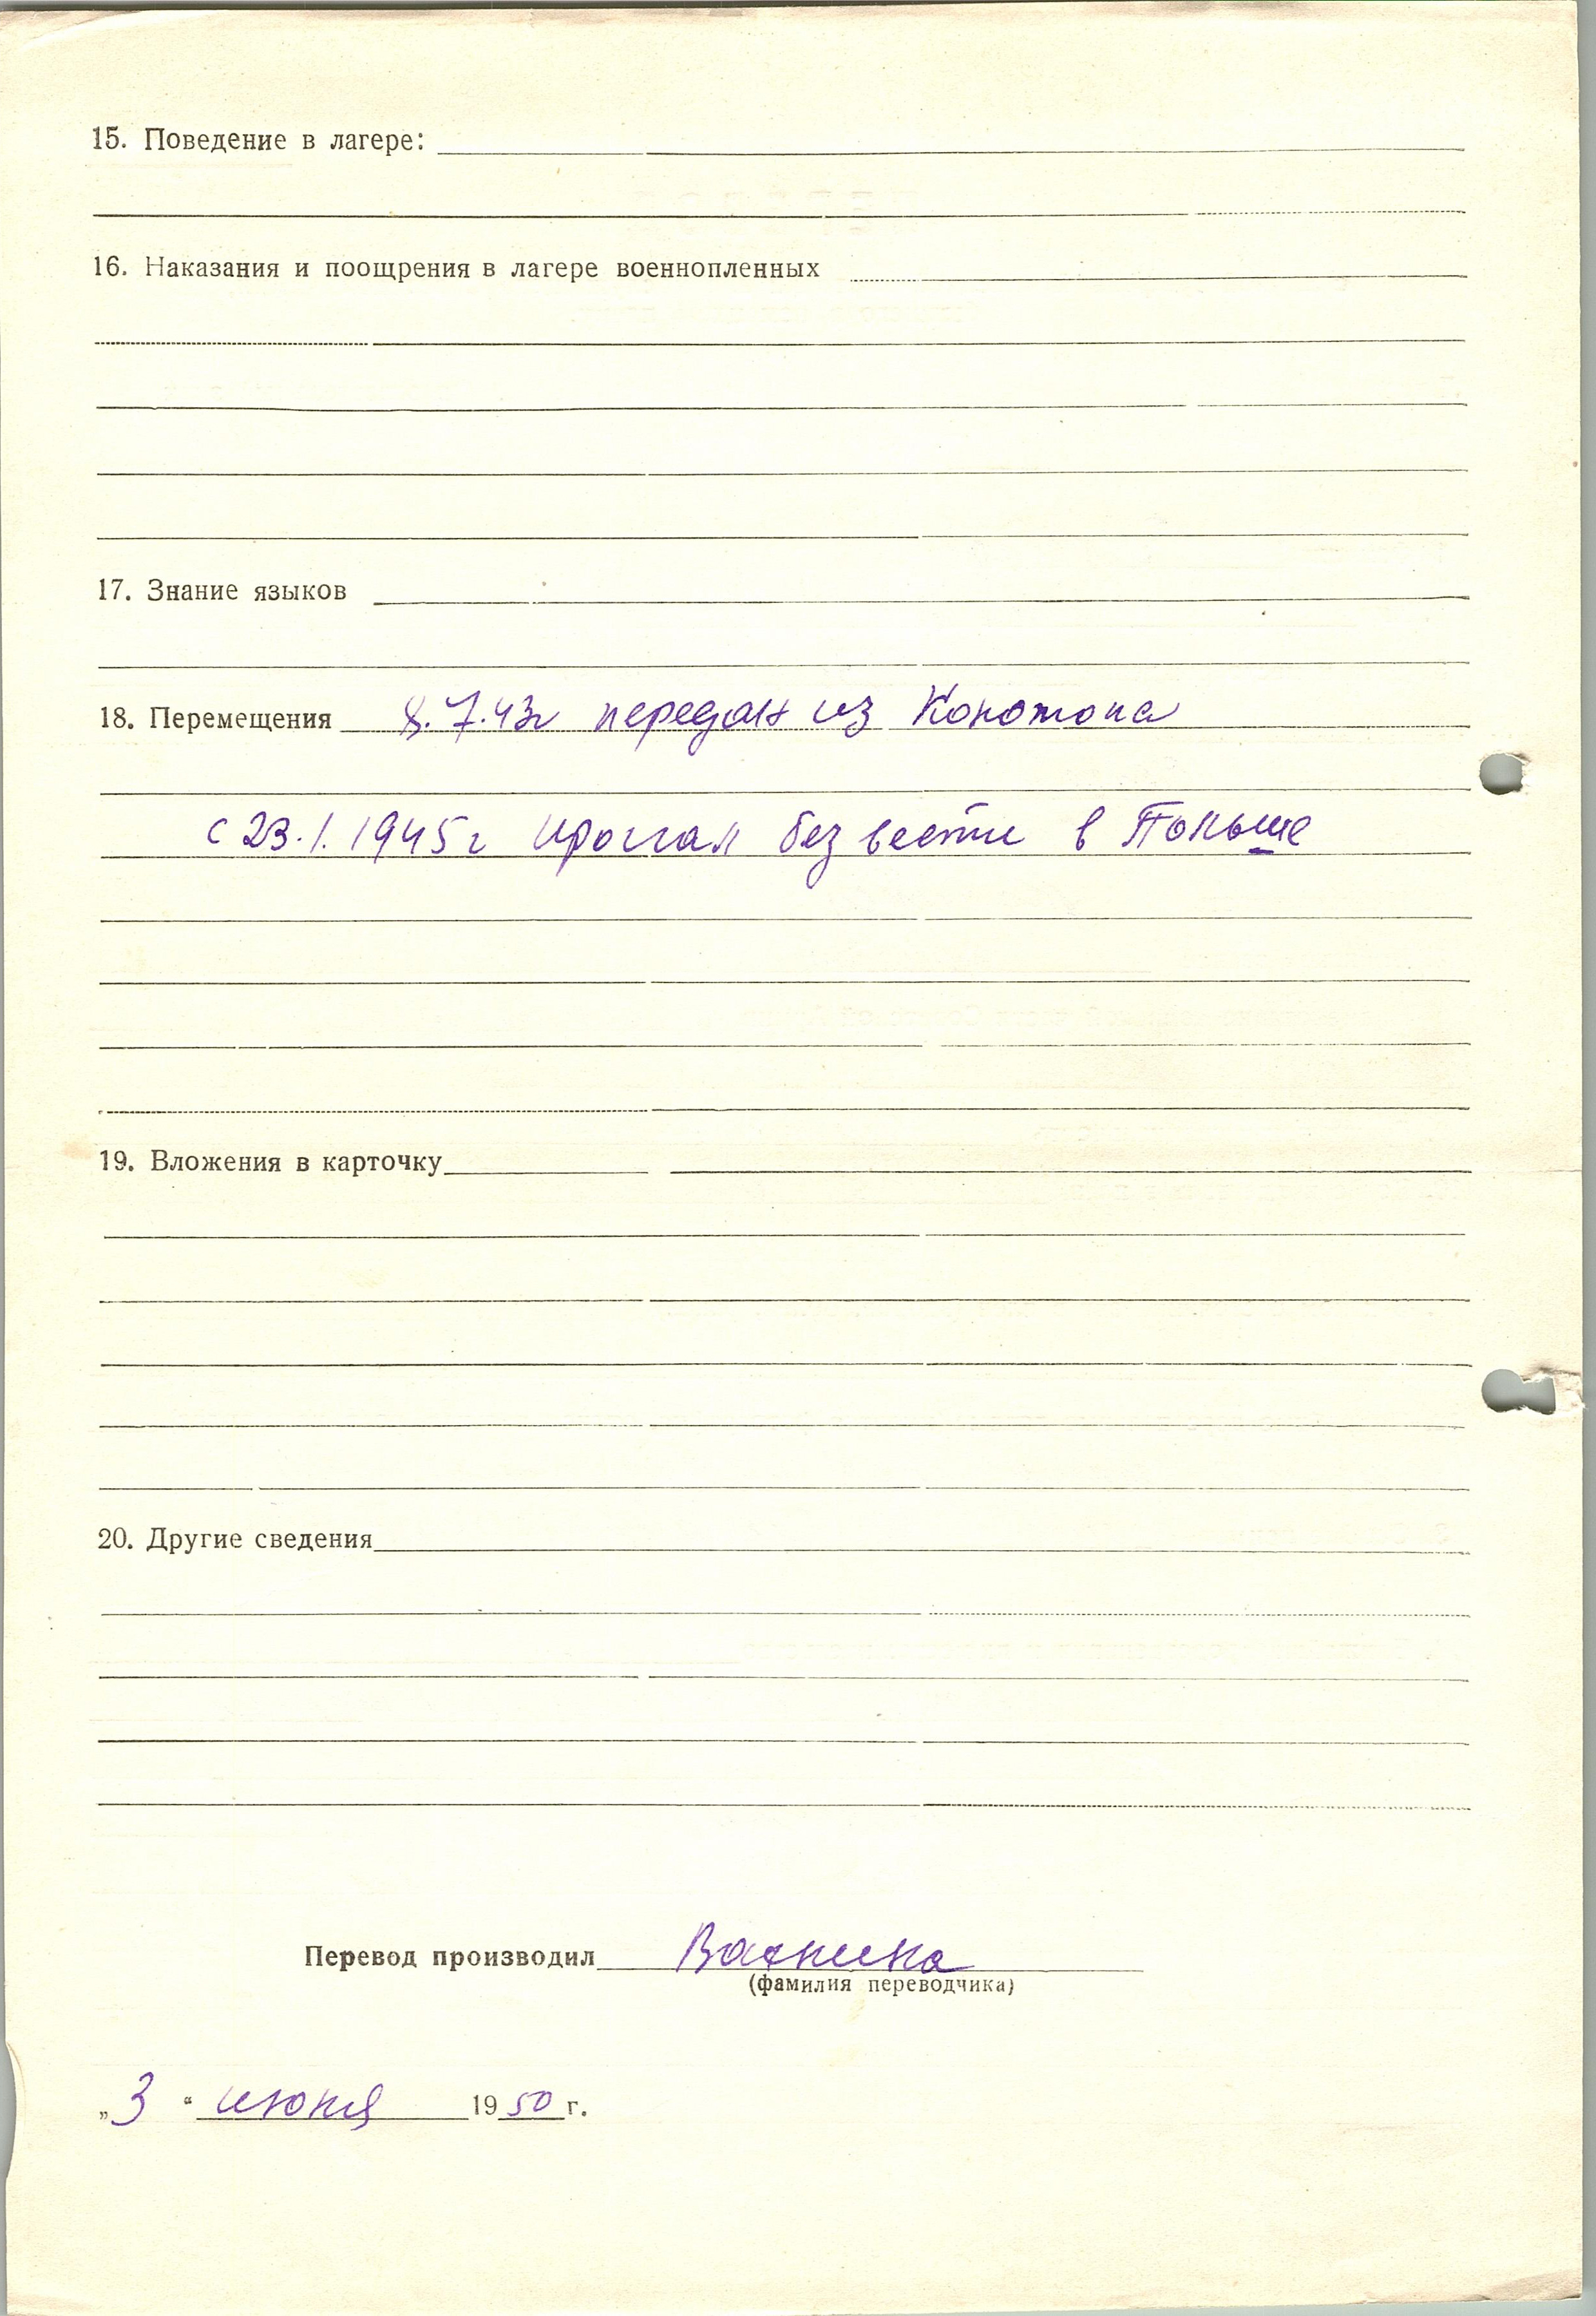 15. Поведение в лагере:
16. Наказания и поощрения в лагере военнопленных
17. Знание языков
18. Перемещения 8.7.43г передан из Конотопа
с 23.1.1945г пропал без вести в Польше
19. Вложения в карточку
20. Другие сведения
Перевод производил
(фамилия переводчика)
„3“ июня 1950 г.